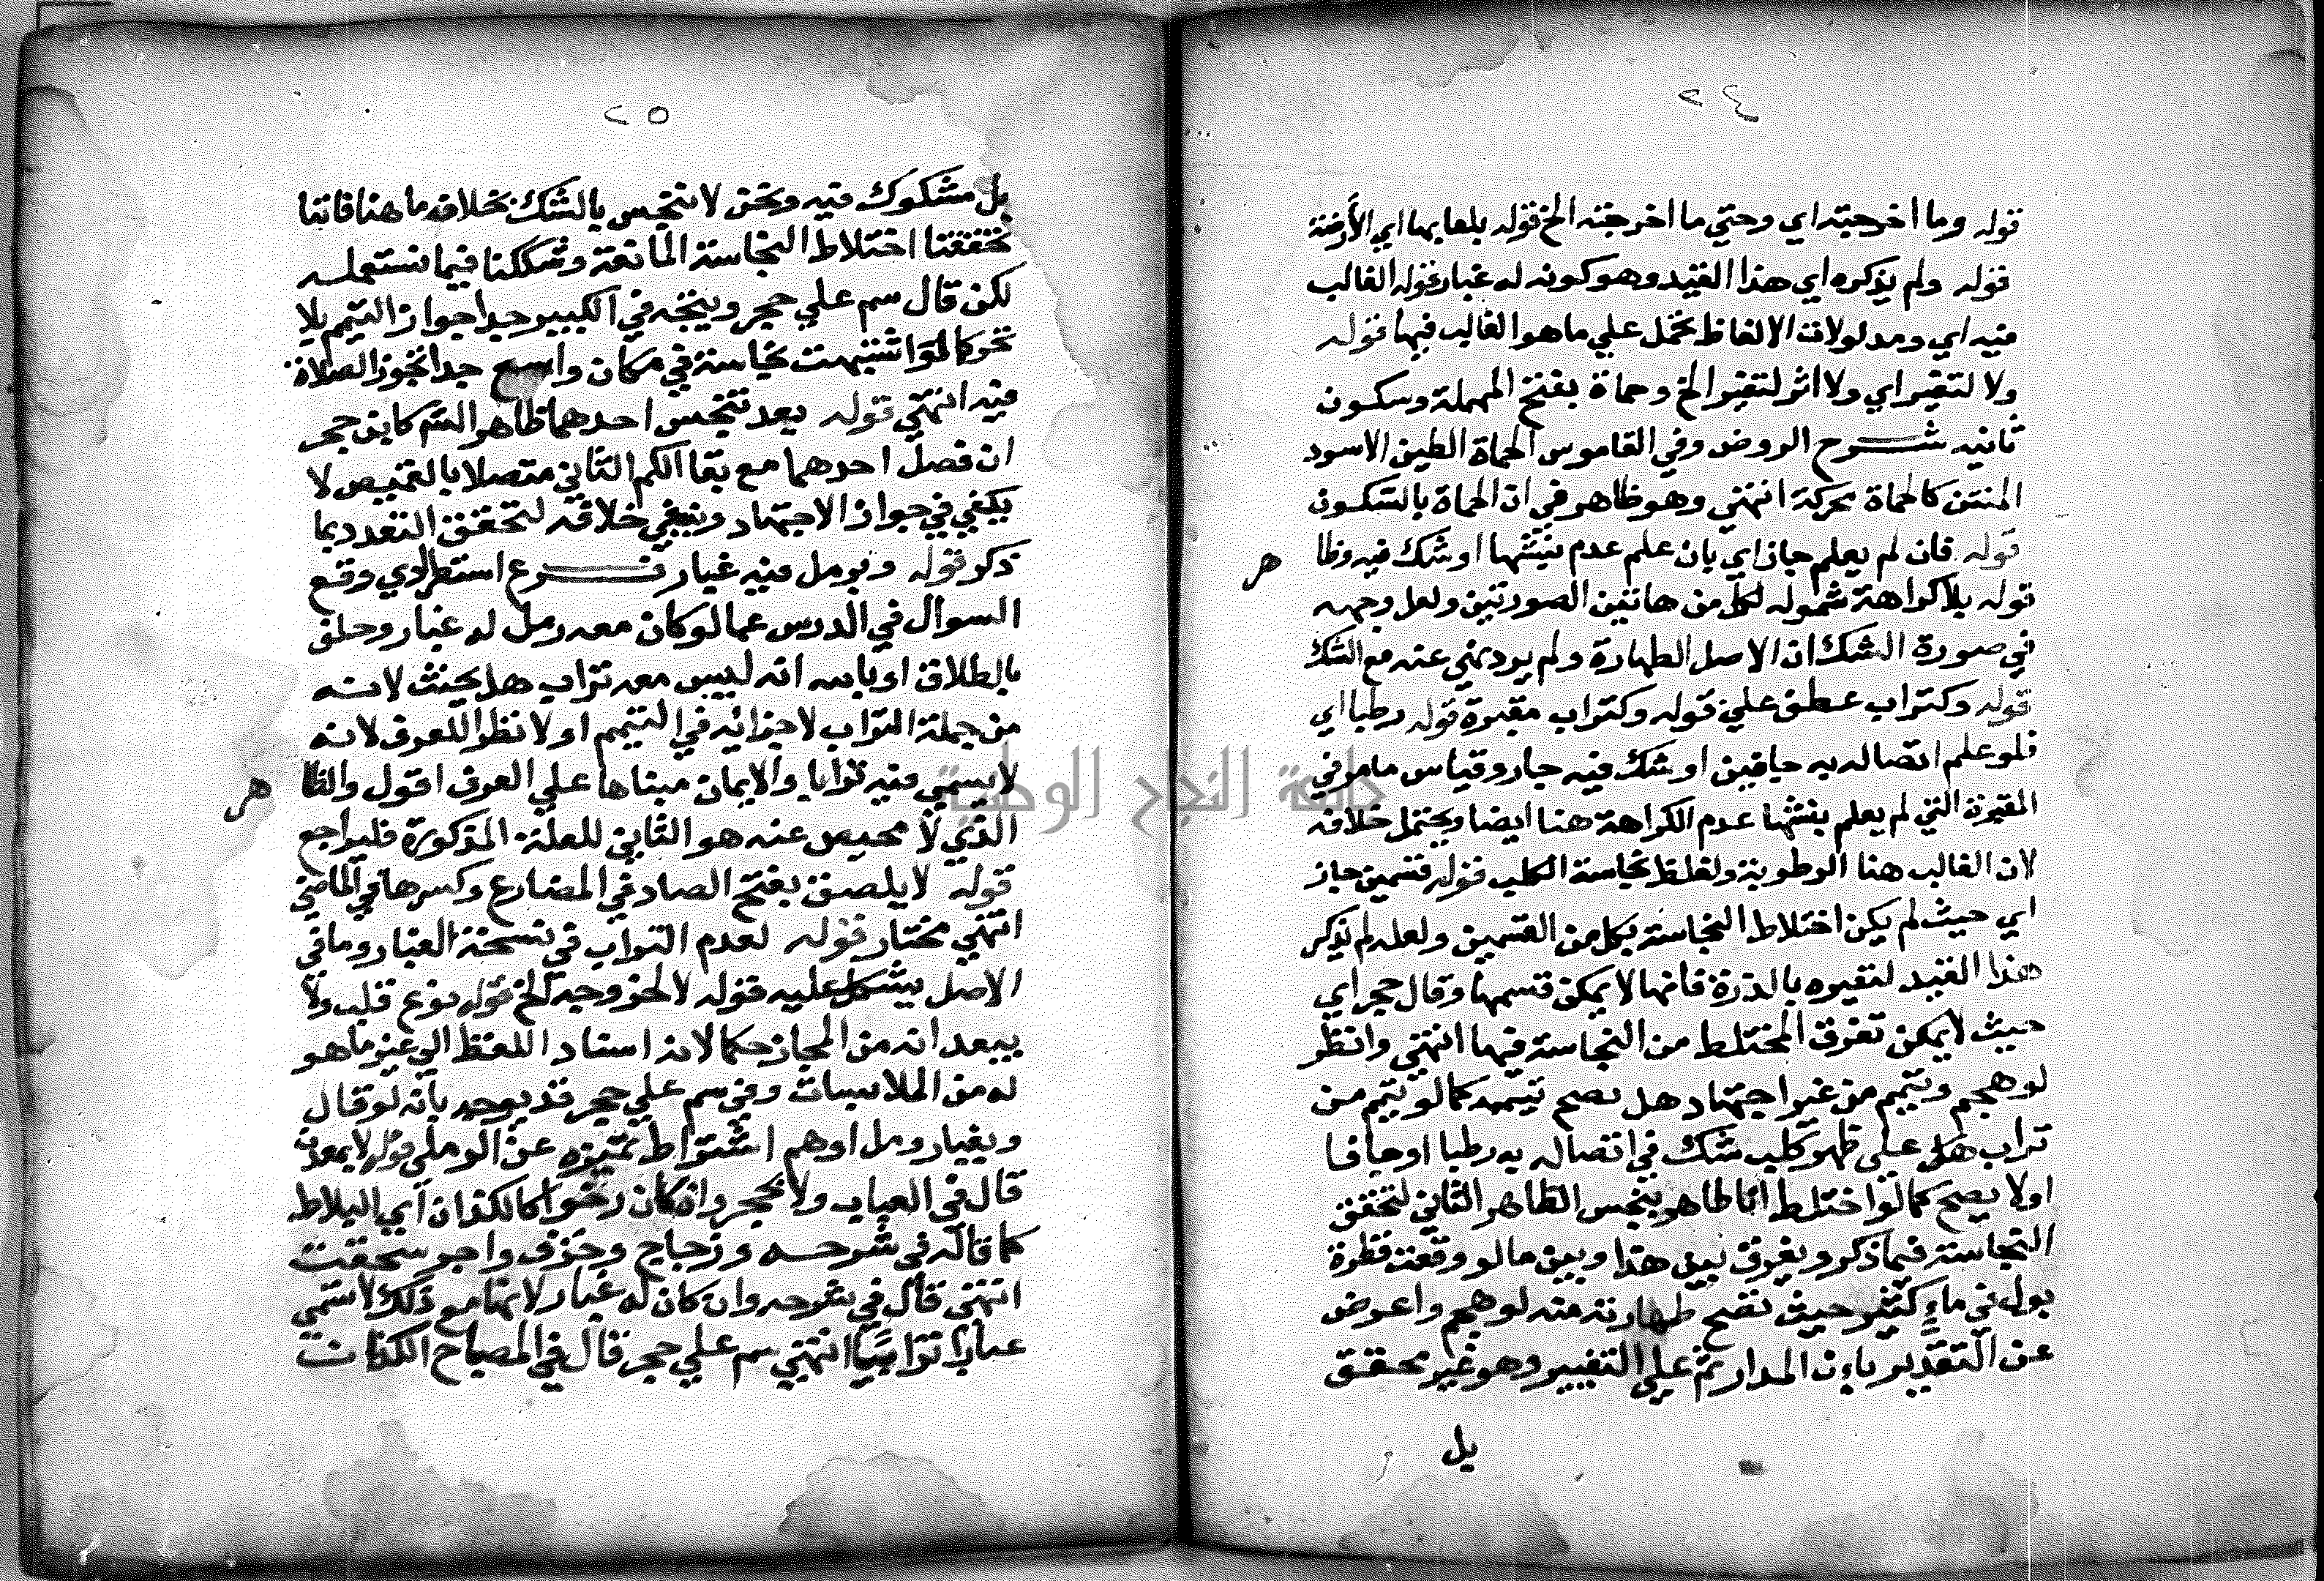 ٢٤
قوله وما اخرجته اي وحتي ما اخرجته الخ قوله بلعابها اي الأرضة
قوله ولم يذكره اي هذا القيد وهو كونه له غبار قوله الغالب
فيه اي ومدلولات الالفاظ تحمل علي ما هو الغالب فيها قوله
ولا لتغير اي ولا اثر لتغير الخ وحماة بفتح المهملة وسكون
ثانيه شرح الروض وفي القاموس الحماة الطين الاسود
المنتن كالحماة محركة انتهي وهو ظاهر في ان الحماة بالسكون
قوله فان لم يعلم جاز اي بان علم عدم نبشها او شك فيه وظا هر
قوله بلا كراهة شموله لكل من هاتين الصورتين ولعل وجهه
في صورة الشك ان الاصل الطهارة ولم يرد نهي عنه مع الشك
قوله وكتراب عطف علي قوله وكتراب مقبرة قوله رطبا اي
فلو علم اتصاله به جافين او شك فيه جاز وقياس ما مر في
المقبرة التي لم يعلم بنشها عدم الكراهة هنا ايضا ويحتمل خلافه
لان الغالب هنا الرطوبة ولغلظ نجاسة الكلب قوله قسمين جاز
اي حيث لم يكن اختلاط النجاسة بكل من القسمين ولعله لم يذكر
هذا القيد لتعبيره بالذرة فانها لا يمكن قسمها وقال حجر اي
حيث لا يمكن تفرق المختلط من النجاسة فيها انتهي وانظر
لو هجم وتيمم من غير اجتهاد هل يصح تيممه كما لو تيمم من
تراب علي ظهر كلب شك في اتصاله به رطبا او جافا
اولا يصح كما لو اختلط انا طاهر بنجس الظاهر الثاني لتحقق
النجاسة فيما ذكر ويفرق بين هذا وبين ما لو وقعت قطرة
بول في ماء كثير حيث تصح طهارته منه لو هجم واعرض
عن التقدير بان المدار ثم علي التغيير وهو غير محقق
بل
٢٥
بل مشكوك فيه ونحن لا ننجس بالشك بخلافه ما هنا فاننا
تحققنا اختلاط النجاسة المانعة وشككنا فيما نستعمله
لكن قال سم علي حجر ويتجه في الكبير جدا جواز التيمم بلا
تحر كما لو اشتبهت نجاسة في مكان واسع جدا تجوز الصلاة
فيه انتهي قوله بعد تنجس احدهما ظاهر الشم كابن حجر
ان فصل احدهما مع بقا الكم الثاني متصلا بالقميص لا
يكفي في جواز الاجتهاد وينبغي خلافه لتحقق التعدد بما
ذكر قوله وبرمل فيه غبار فرع استطرادي وقع
السوال في الدرس عما لو كان معه رمل له غبار وحلف
بالطلاق او بالله انه ليس معه تراب هل يحنث لانه
من جملة التراب لاجزائه في التيمم او لا نظرا للعرف لانه
لا يسمي فيه ترابا والايمان مبناها علي العرف اقول والظا هر
الذي لا محيص عنه هو الثاني للعلة المذكورة فليراجع
قوله لا يلصق بفتح الصاد في المضارع وكسرها في الماضي
انتهي مختار قوله لعدم التراب في نسخة الغبار وما في
الاصل يشكل عليه قوله لا لخروجه الخ قوله نوع قلب ولا
يبعد انه من المجاز حكما لانه اسناد اللفظ الي غير ما هو
له من الملابسات وفي سم علي حجر قد يوجه بانه لو قال
وبغبار رمل اوهم اشتراط تميزه عن الرمل قوله لا بمعدن
قال في العباب ولا بحجر وان كان رخوا كالكذان اي البلاط
كما قاله في شرحه وزجاج وخزف واجر سحقت
انتهي قال في شرحه وان كان له غبار لانها مع ذلك لا تسمي
غبارا ترابيا انتهي سم علي حجر قال في المصباح الكذان
جامعة النجاح الوطنية